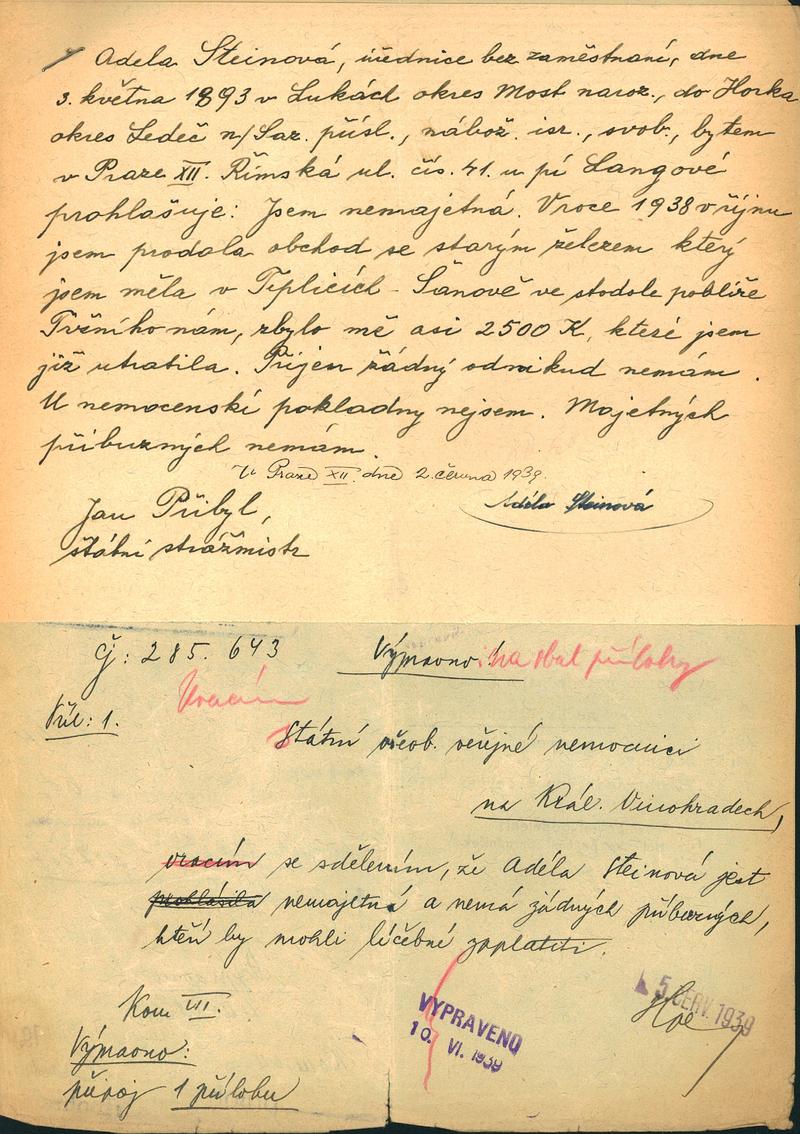 Adéla Steinová, úřednice bez zaměstnaní, dne
3. května 1893 v Lukách okres Most naroz., do Horka
okres Ledeč n/Saz. přísl., nábož. isr., svob., bytem
v Praze XII. Římská ul. čís. 41. u pí Langové
prohlašuje: Jsem nemajetná. V roce 1938 v říjnu
jsem prodala obchod se starým železem který
jsem měla v Teplicích - Šanově ve stodole poblíže
Tržního nám, zbylo mě asi 2500 K, které jsem
již utratila. Příjem žádný odnikud nemám.
U nemocenské pokladny nejsem. Majetných
příbuzných nemám.
V Praze XII. dne 2. června 1939.
Adéla Steinová
Jan Přibyl,
státní strážmistr
Čj: 285.643
Výpravno!
přílohy
Vracím
Příl: 1.
Státní všeob. veřejné nemocnici
na Král. Vinohradech,
vracím se sdělením, že Adéla Steinová jest
prohlásila nemajetná a nemá žádných příbuzných,
kteří by mohli léčebné zaplatiti.
Kom III.
5. ČERV. 1939
VYPRAVENO
10. VI. 1939
Výpravno:
připoj 1 přílohu